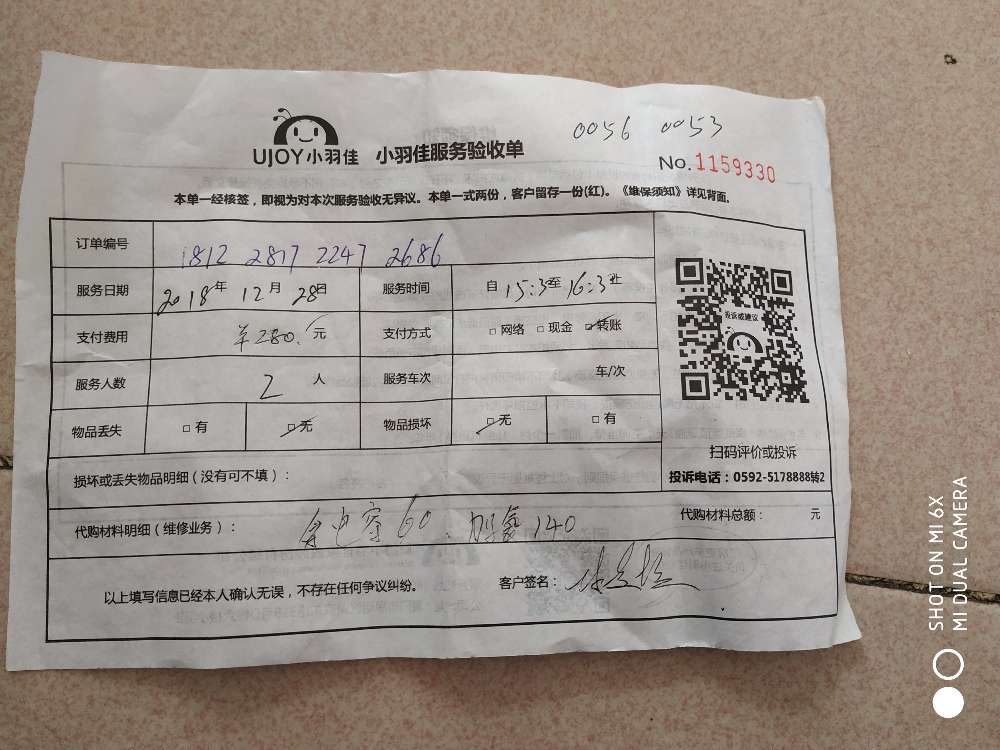 0056 0053
UJOY小羽佳 小羽佳服务验收单
No.1159330
本单一经核签，即视为对本次服务验收无异议。本单一式两份，客户留存一份(红)。《维保须知》详见背面。
订单编号 1812 2817 2247 2686
服务日期 2018年 12月 28日 服务时间 自 15:3至 16:3止
支付费用 ￥280. 元 支付方式 □ 网络 □ 现金 ☑ 转账
服务人数 2 人 服务车次 车/次
物品丢失 □ 有 ☑ 无 物品损坏 ☑ 无 □ 有
投诉或建议
扫码评价或投诉
投诉电话：0592-5178888转2
损坏或丢失物品明细（没有可不填）：
代购材料明细（维修业务）： 电容 60 、加氟 140
代购材料总额： 元
以上填写信息已经本人确认无误，不存在任何争议纠纷。 客户签名：
SHOT ON MI 6X
MI DUAL CAMERA